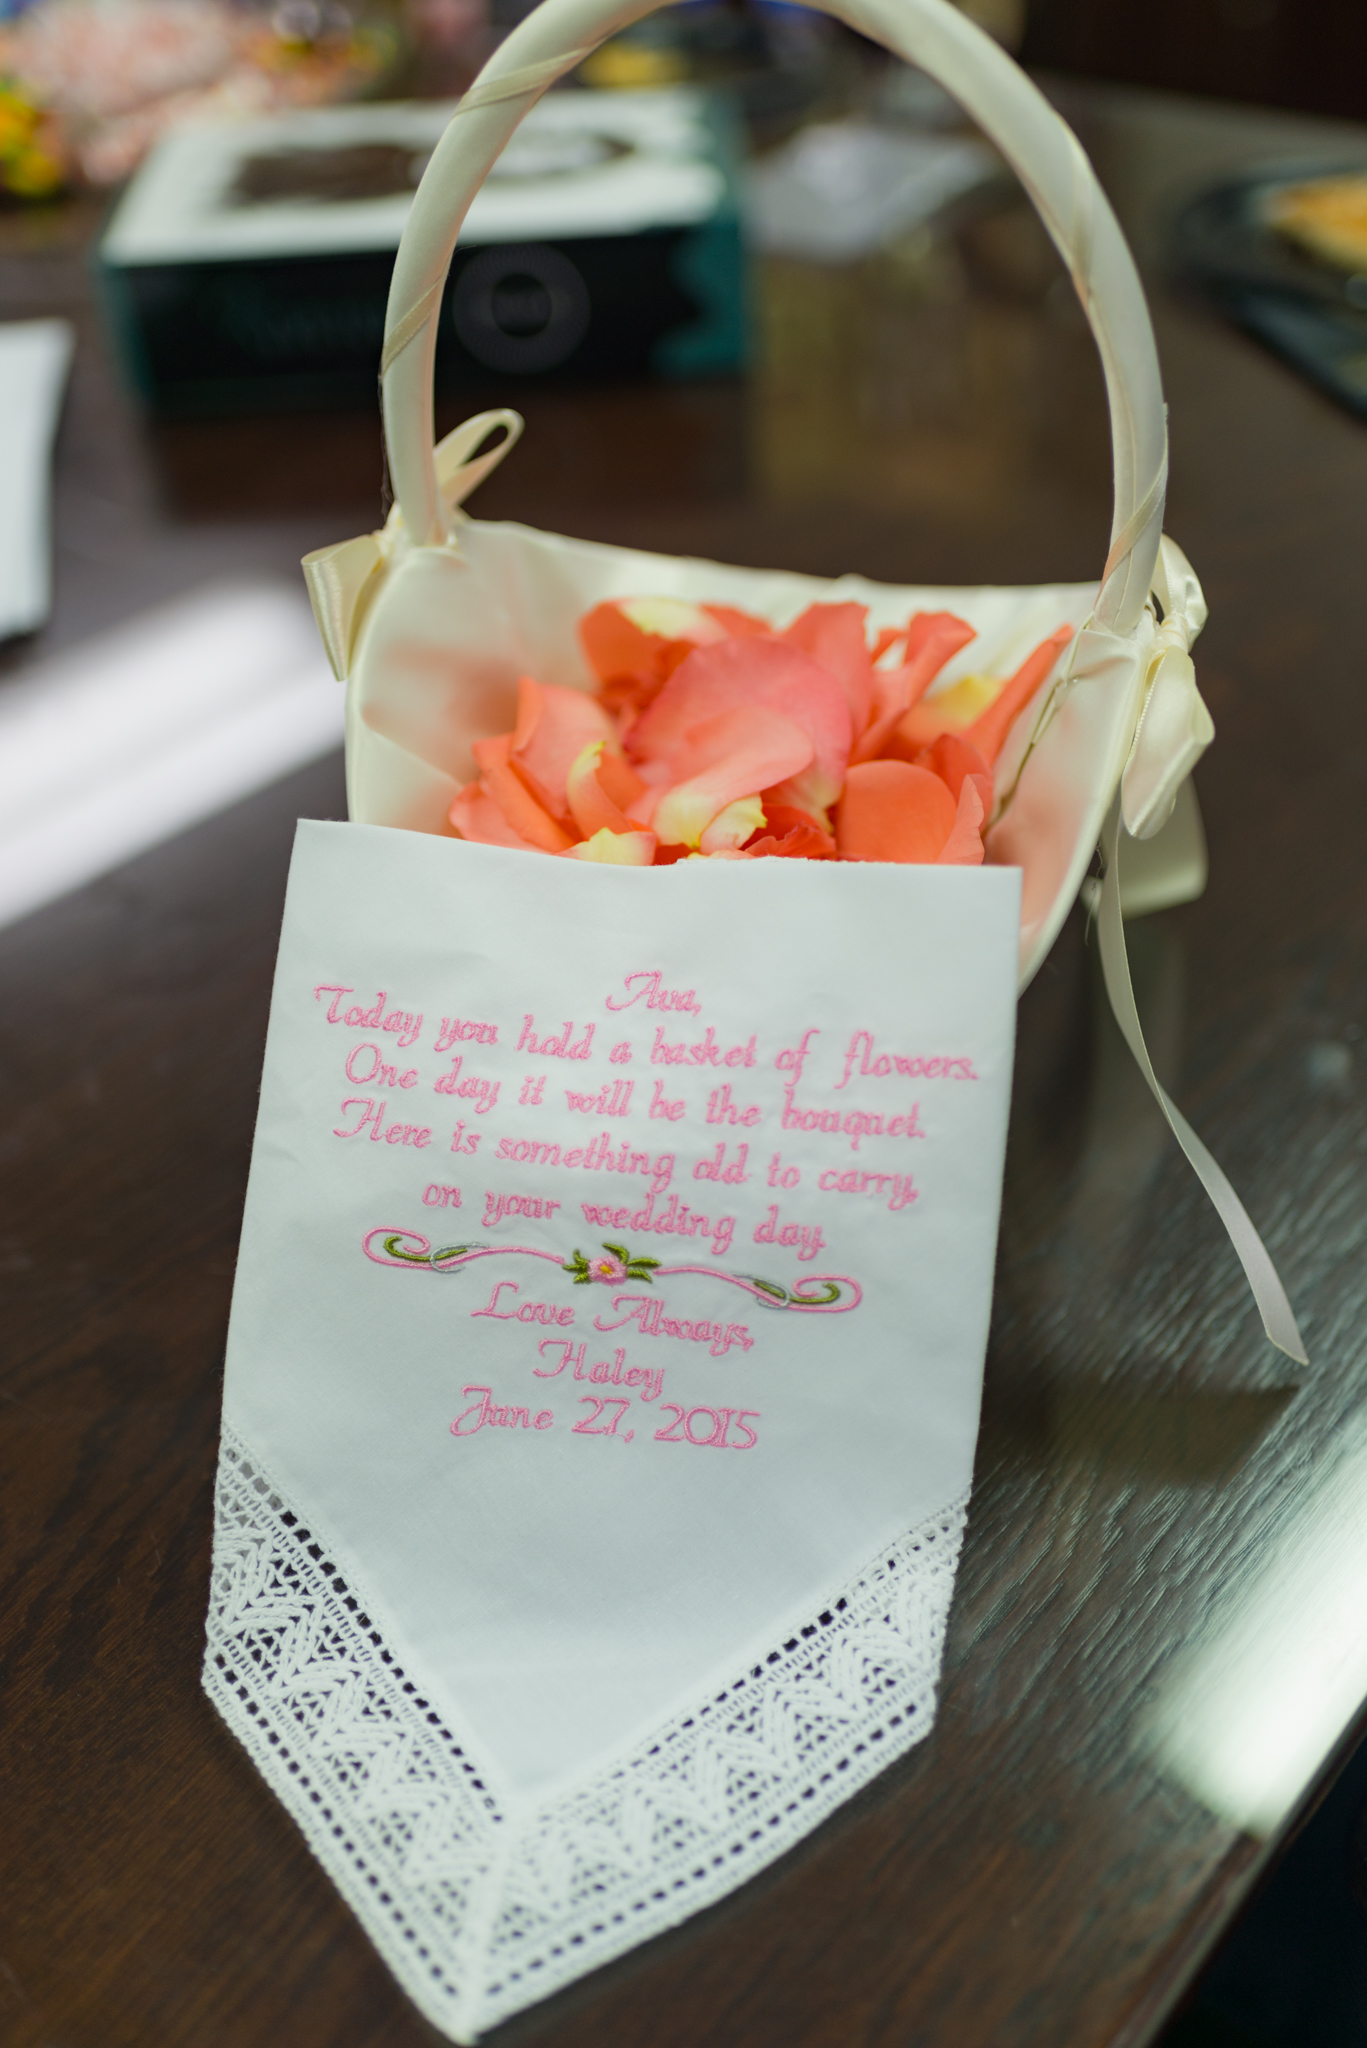 Ava,
Today you hold a basket of flowers.
One day it will be the bouquet.
Here is something old to carry,
on your wedding day.
Love Always,
Haley
June 27, 2015